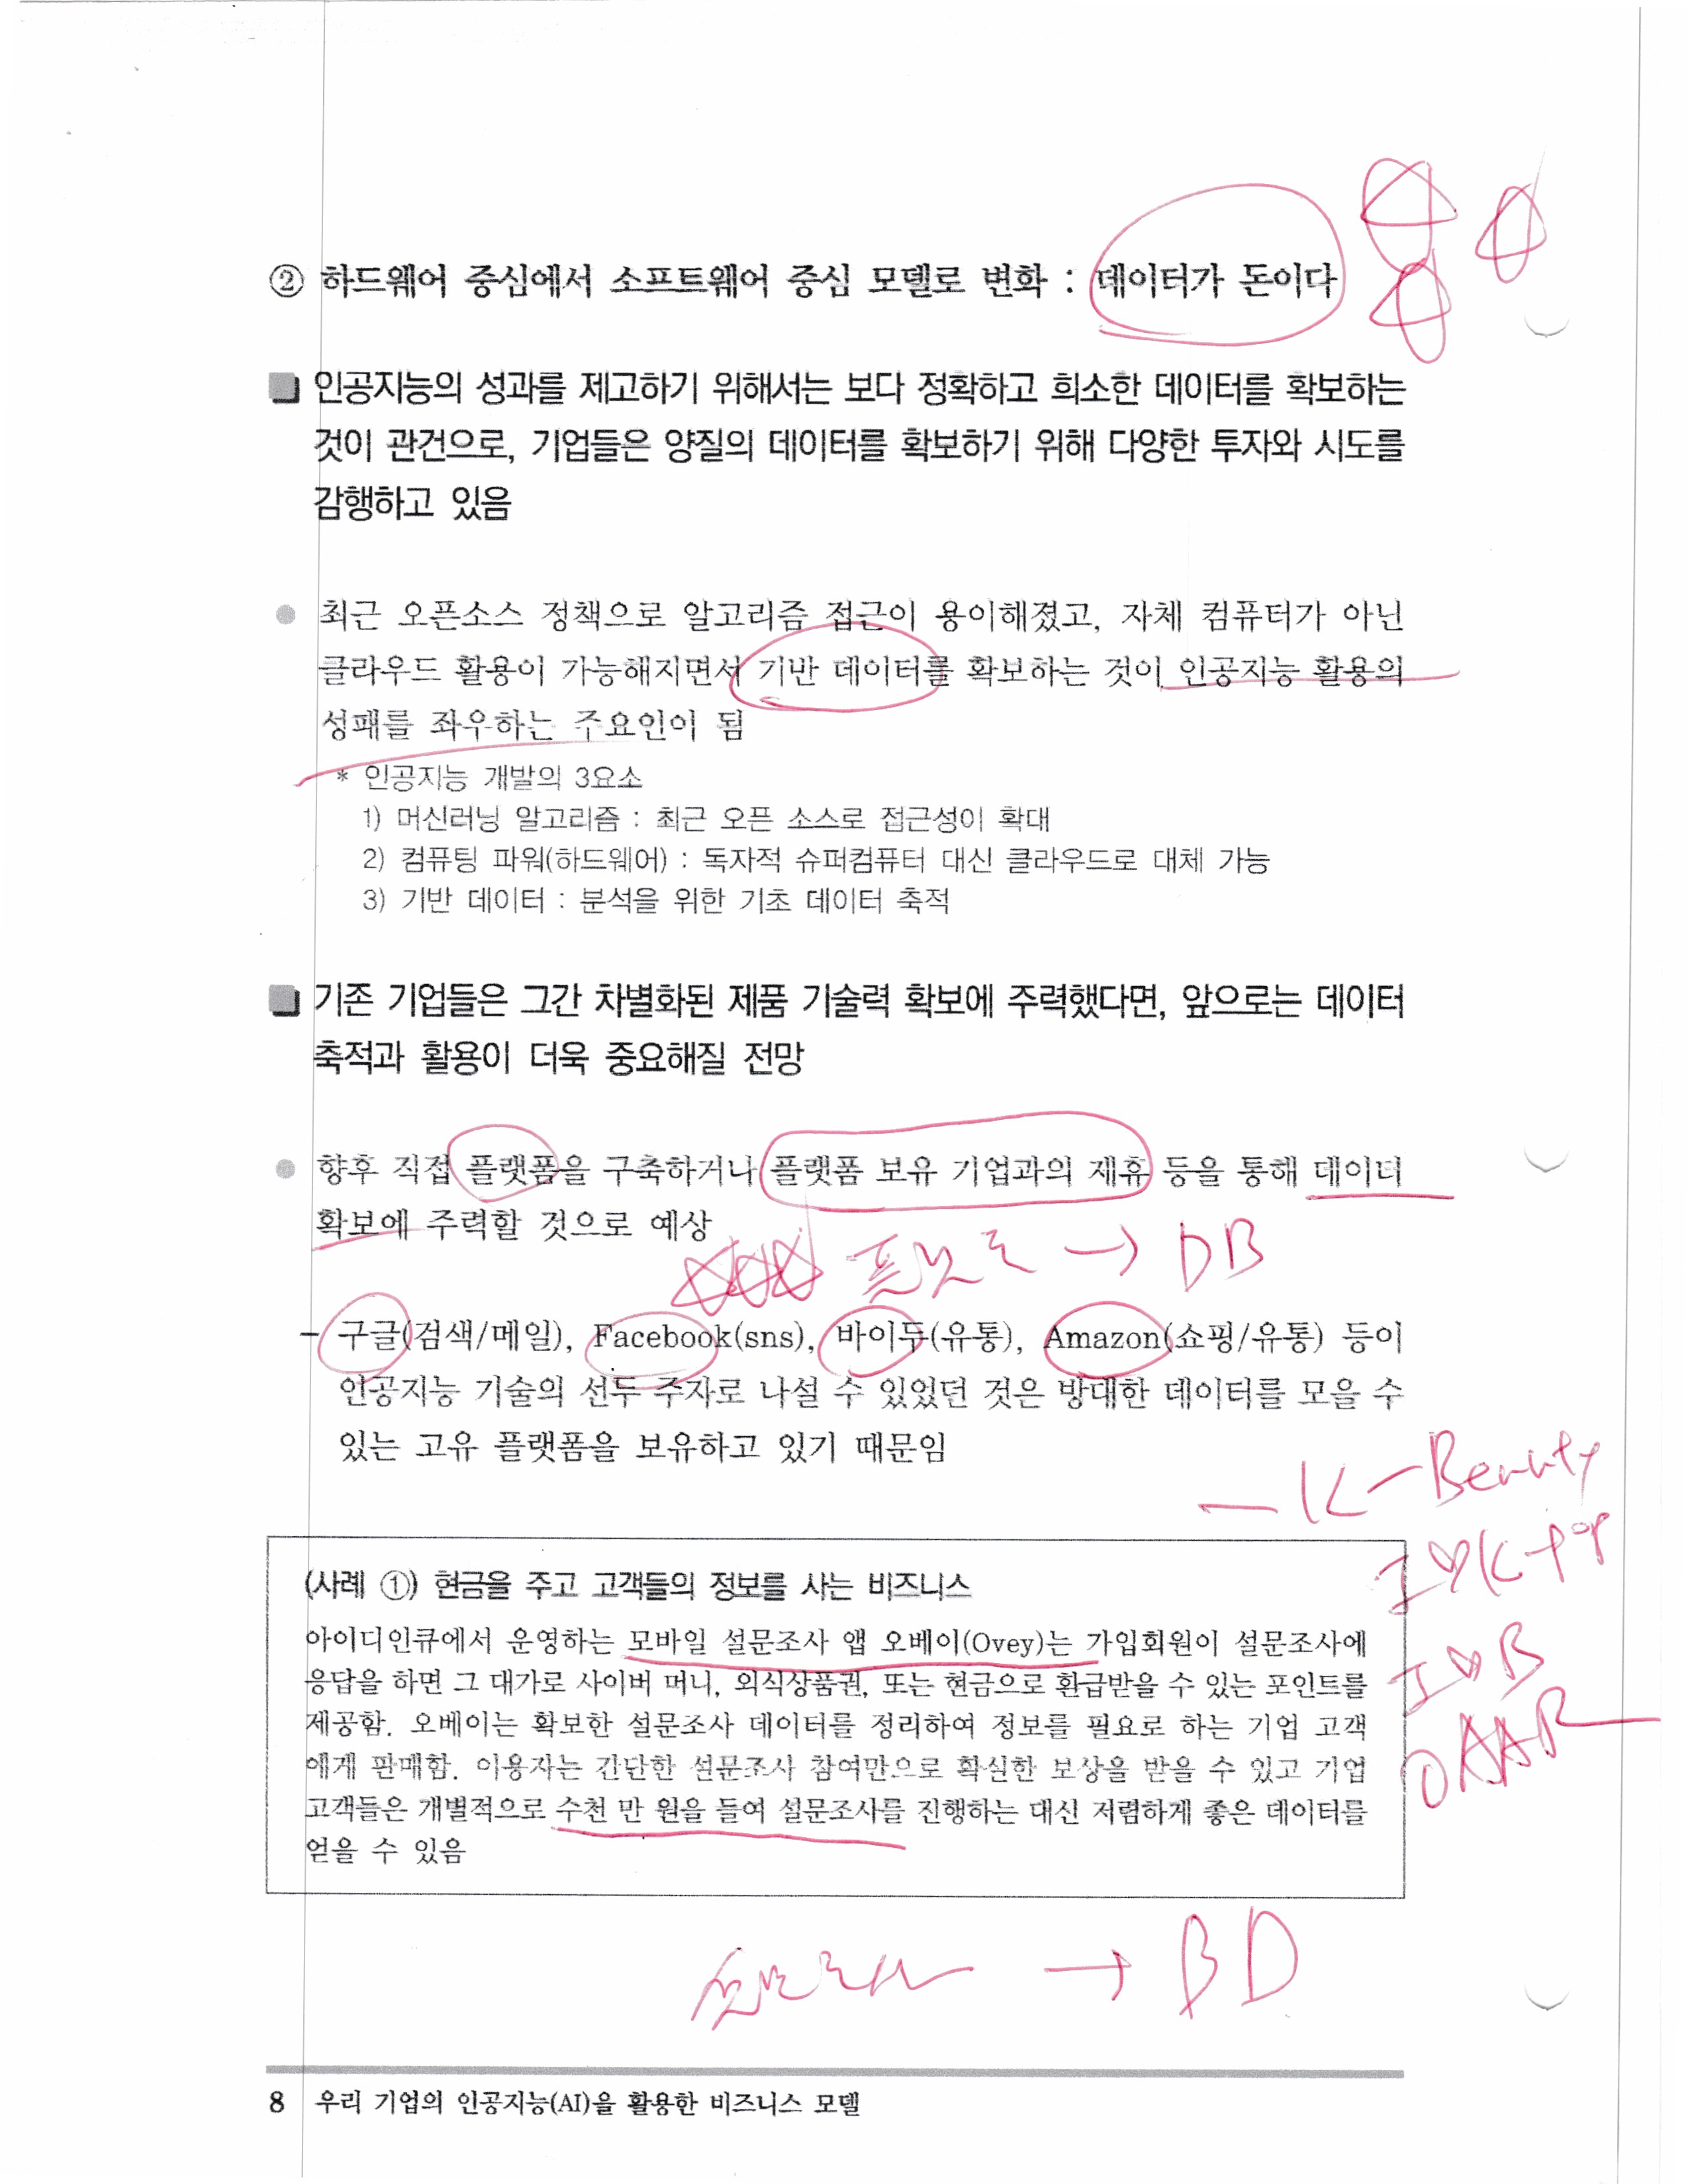 ② 하드웨어 중심에서 소프트웨어 중심 모델로 변화 : 데이터가 돈이다
인공지능의 성과를 제고하기 위해서는 보다 정확하고 희소한 데이터를 확보하는
것이 관건으로, 기업들은 양질의 데이터를 확보하기 위해 다양한 투자와 시도를
감행하고 있음
최근 오픈소스 정책으로 알고리즘 접근이 용이해졌고, 자체 컴퓨터가 아닌
클라우드 활용이 가능해지면서 기반 데이터를 확보하는 것이 인공지능 활용의
성패를 좌우하는 주요인이 됨
* 인공지능 개발의 3요소
1) 머신러닝 알고리즘 : 최근 오픈 소스로 접근성이 확대
2) 컴퓨팅 파워(하드웨어) : 독자적 슈퍼컴퓨터 대신 클라우드로 대체 가능
3) 기반 데이터 : 분석을 위한 기초 데이터 축적
기존 기업들은 그간 차별화된 제품 기술력 확보에 주력했다면, 앞으로는 데이터
축적과 활용이 더욱 중요해질 전망
향후 직접 플랫폼을 구축하거나 플랫폼 보유 기업과의 제휴 등을 통해 데이터
확보에 주력할 것으로 예상
→ DB
- 구글(검색/메일), Facebook(sns), 바이두(유통), Amazon(쇼핑/유통) 등이
인공지능 기술의 선두 주자로 나설 수 있었던 것은 방대한 데이터를 모을 수
있는 고유 플랫폼을 보유하고 있기 때문임
- K-Beauty
I ♡ K-pop
(사례 ①) 현금을 주고 고객들의 정보를 사는 비즈니스
아이디인큐에서 운영하는 모바일 설문조사 앱 오베이(Ovey)는 가입회원이 설문조사에
I ♡ B
응답을 하면 그 대가로 사이버 머니, 외식상품권, 또는 현금으로 환급받을 수 있는 포인트를
제공함. 오베이는 확보한 설문조사 데이터를 정리하여 정보를 필요로 하는 기업 고객
에게 판매함. 이용자는 간단한 설문조사 참여만으로 확실한 보상을 받을 수 있고 기업
고객들은 개별적으로 수천 만 원을 들여 설문조사를 진행하는 대신 저렴하게 좋은 데이터를
얻을 수 있음
→ BD
8 우리 기업의 인공지능(AI)을 활용한 비즈니스 모델